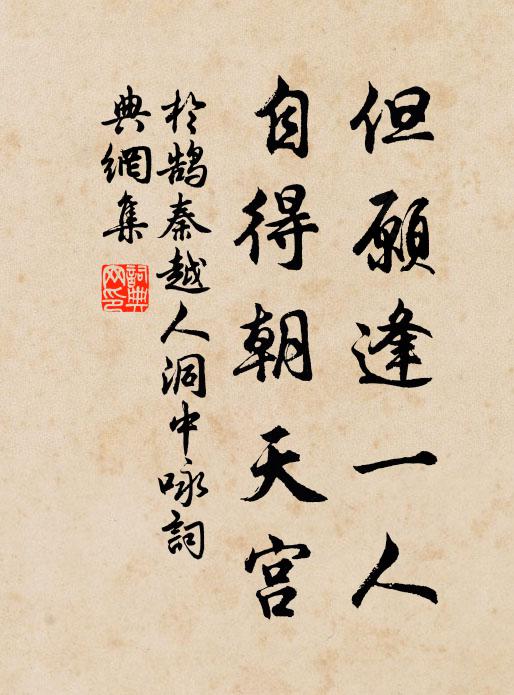 但願逢一人
自得朝天宮
於鵠秦越人洞中咏詞
典網集
詞典
网印